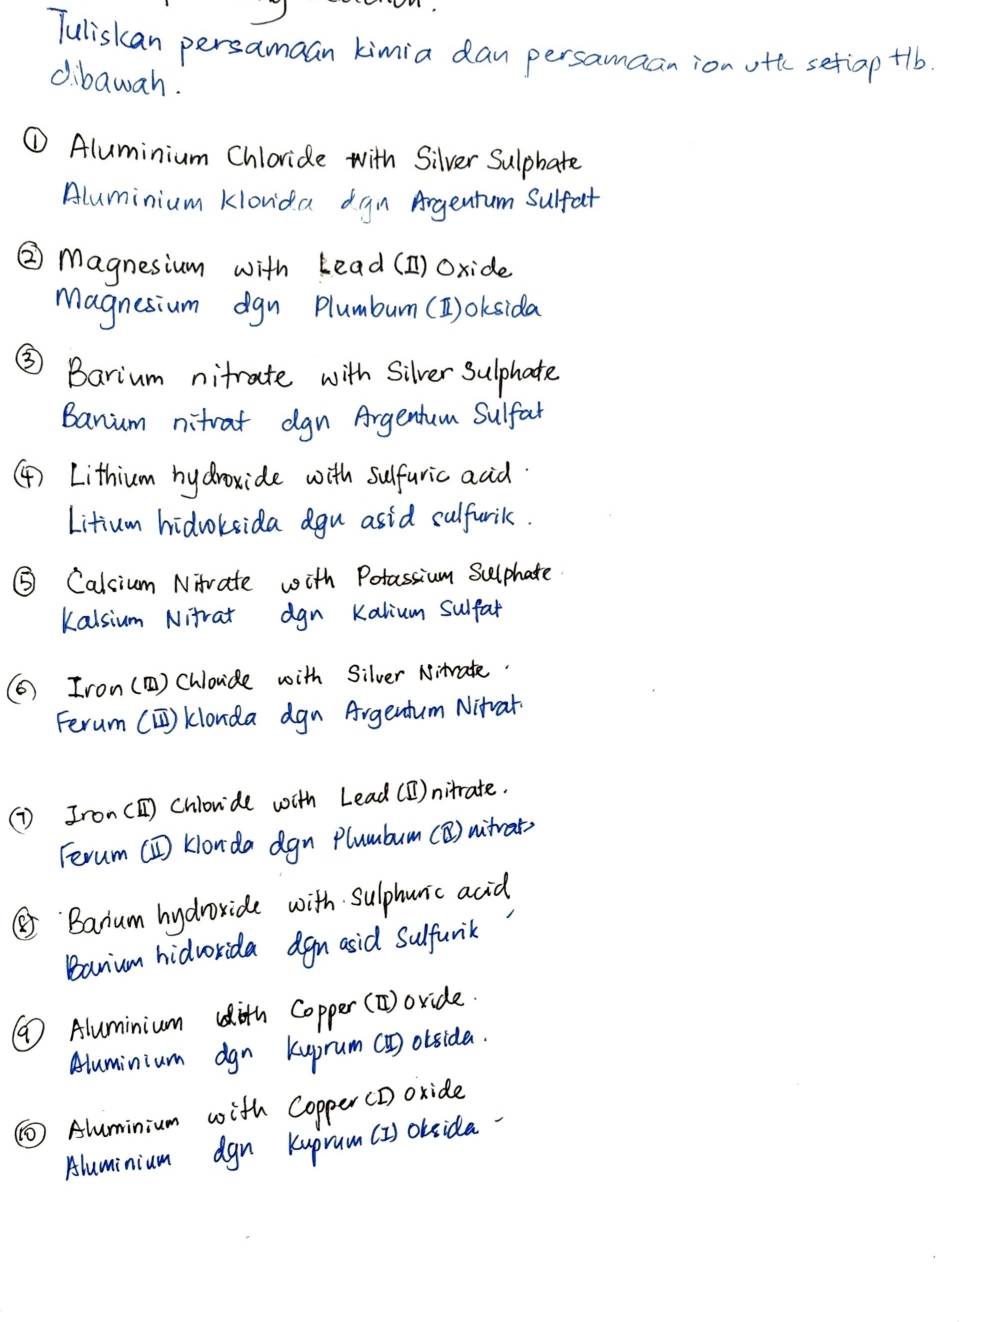 Tuliskan persamaan kimia dan persamaan ion utk setiap tlb.
dibawah.
① Aluminium Chloride with Silver Sulphate
Aluminium Klorida dgn Argentum Sulfat
② Magnesium with Lead (II) Oxide
Magnesium dgn Plumbum (II) oksida
③ Barium nitrate with Silver Sulphate
Barium nitrat dgn Argentum Sulfat
④ Lithium hydroxide with sulfuric acid.
Litium hidroksida dgn asid sulfurik.
⑤ Calcium Nitrate with Potassium Sulphate.
Kalsium Nitrat dgn Kalium Sulfat
⑥ Iron (III) Chloride with Silver Nitrate.
Ferum (III) klorida dgn Argentum Nitrat.
⑦ Iron (II) Chloride with Lead (II) nitrate.
Ferum (II) klorida dgn Plumbum (II) nitrat
⑧ Barium hydroxide with sulphuric acid
Barium hidroxida dgn asid Sulfurik
⑨ Aluminium with Copper (II) oxide.
Aluminium dgn Kuprum (II) oksida.
⑩ Aluminium with Copper (I) oxide
Aluminium dgn Kuprum (I) oksida -